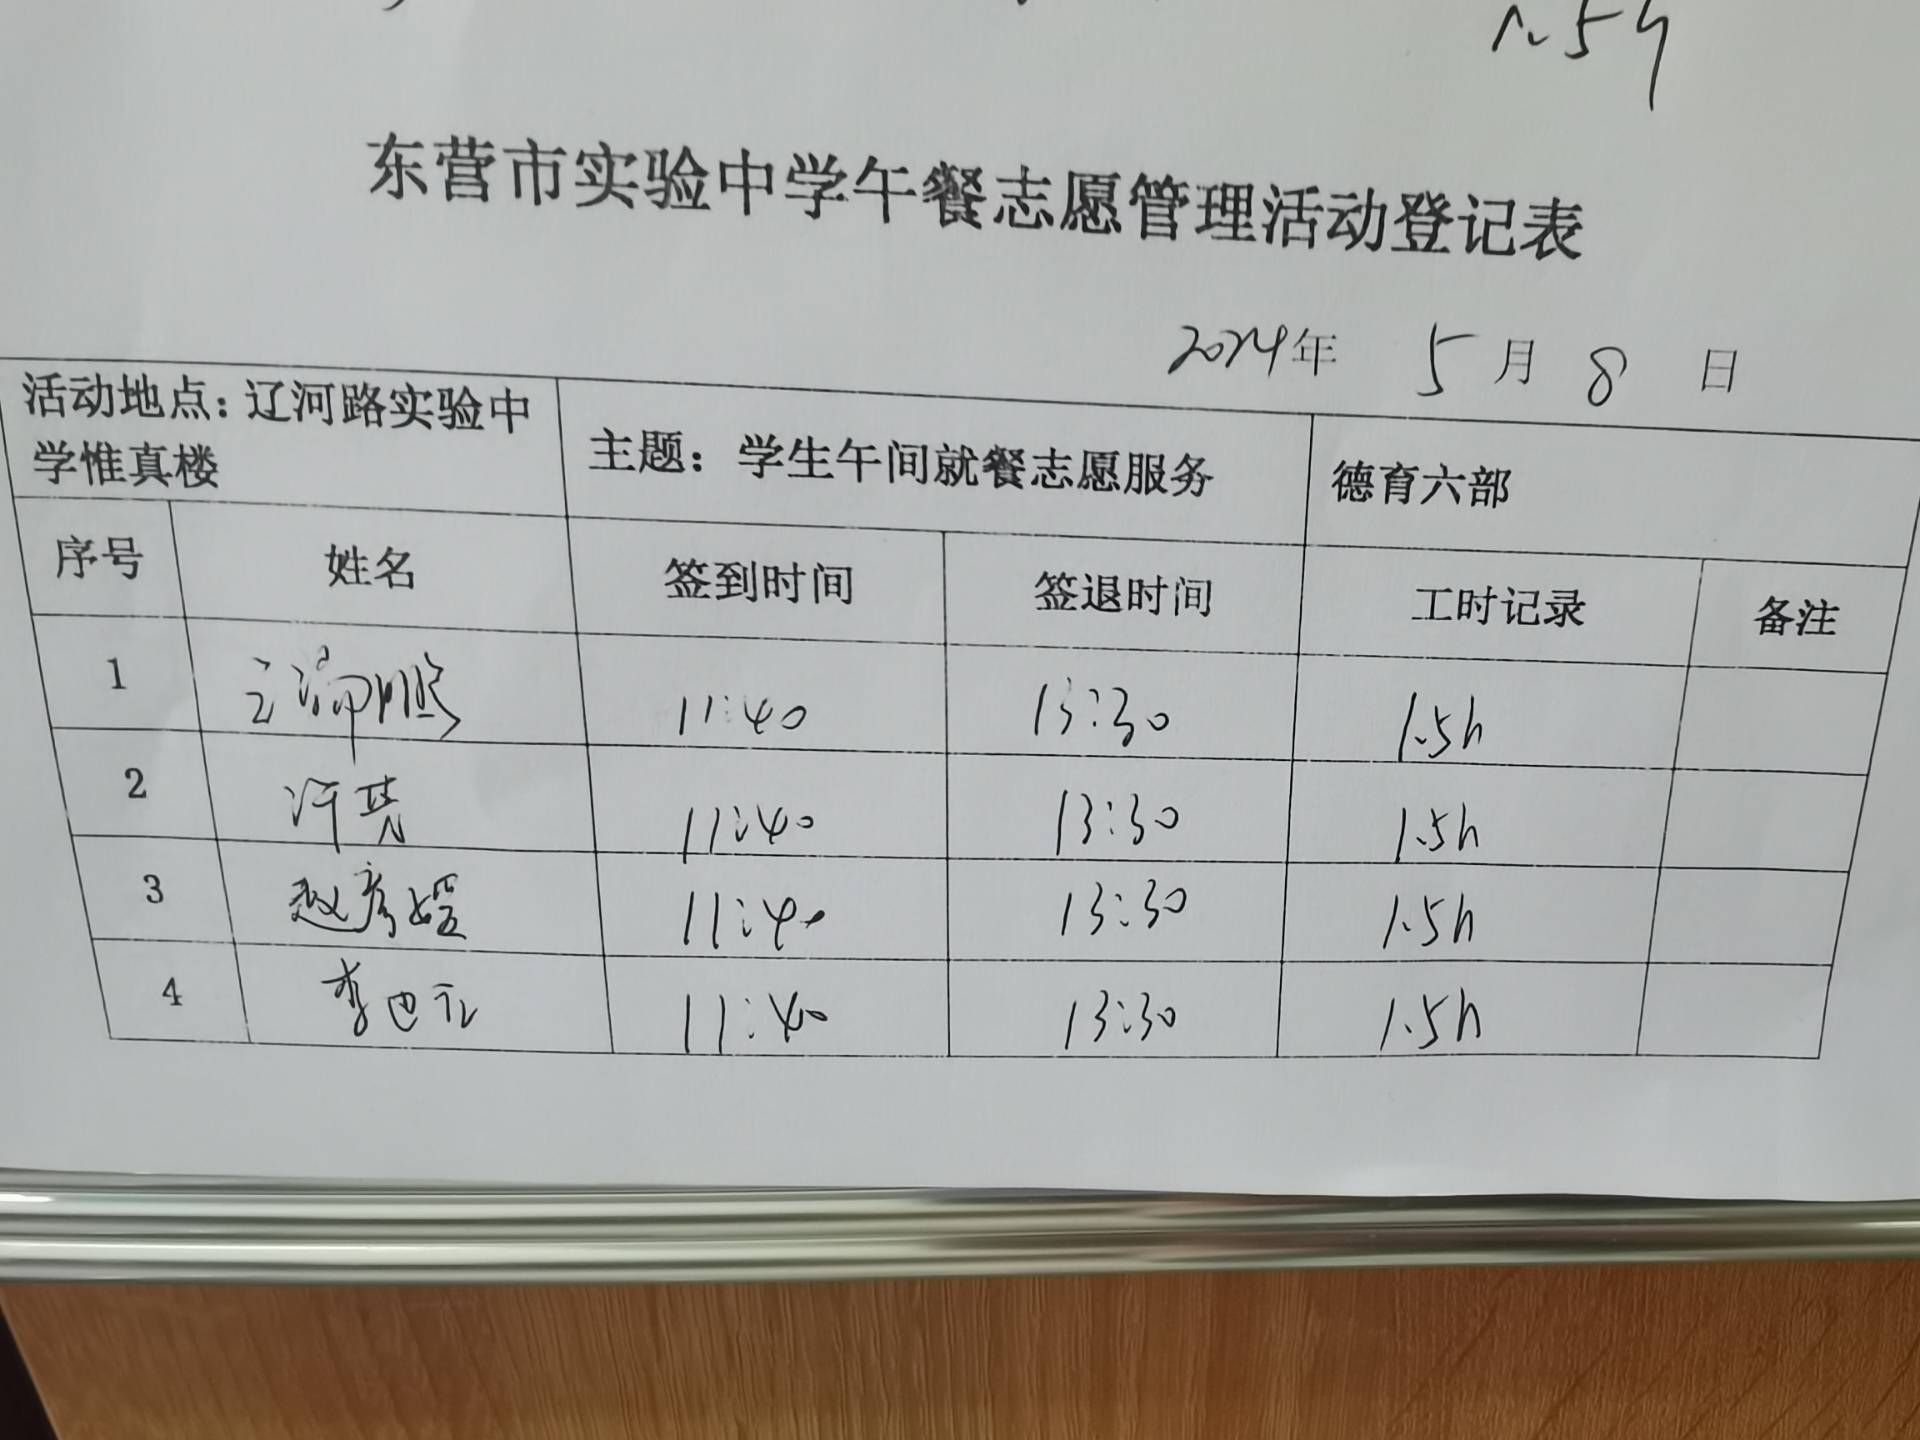 1.5h
东营市实验中学午餐志愿管理活动登记表
2024年 5月 8日
活动地点：辽河路实验中学惟真楼 主题：学生午间就餐志愿服务 德育六部
序号 姓名 签到时间 签退时间 工时记录 备注
1 11:40 13:30 1.5h
2 11:40 13:30 1.5h
3 赵彦 11:40 13:30 1.5h
4 李 11:40 13:30 1.5h